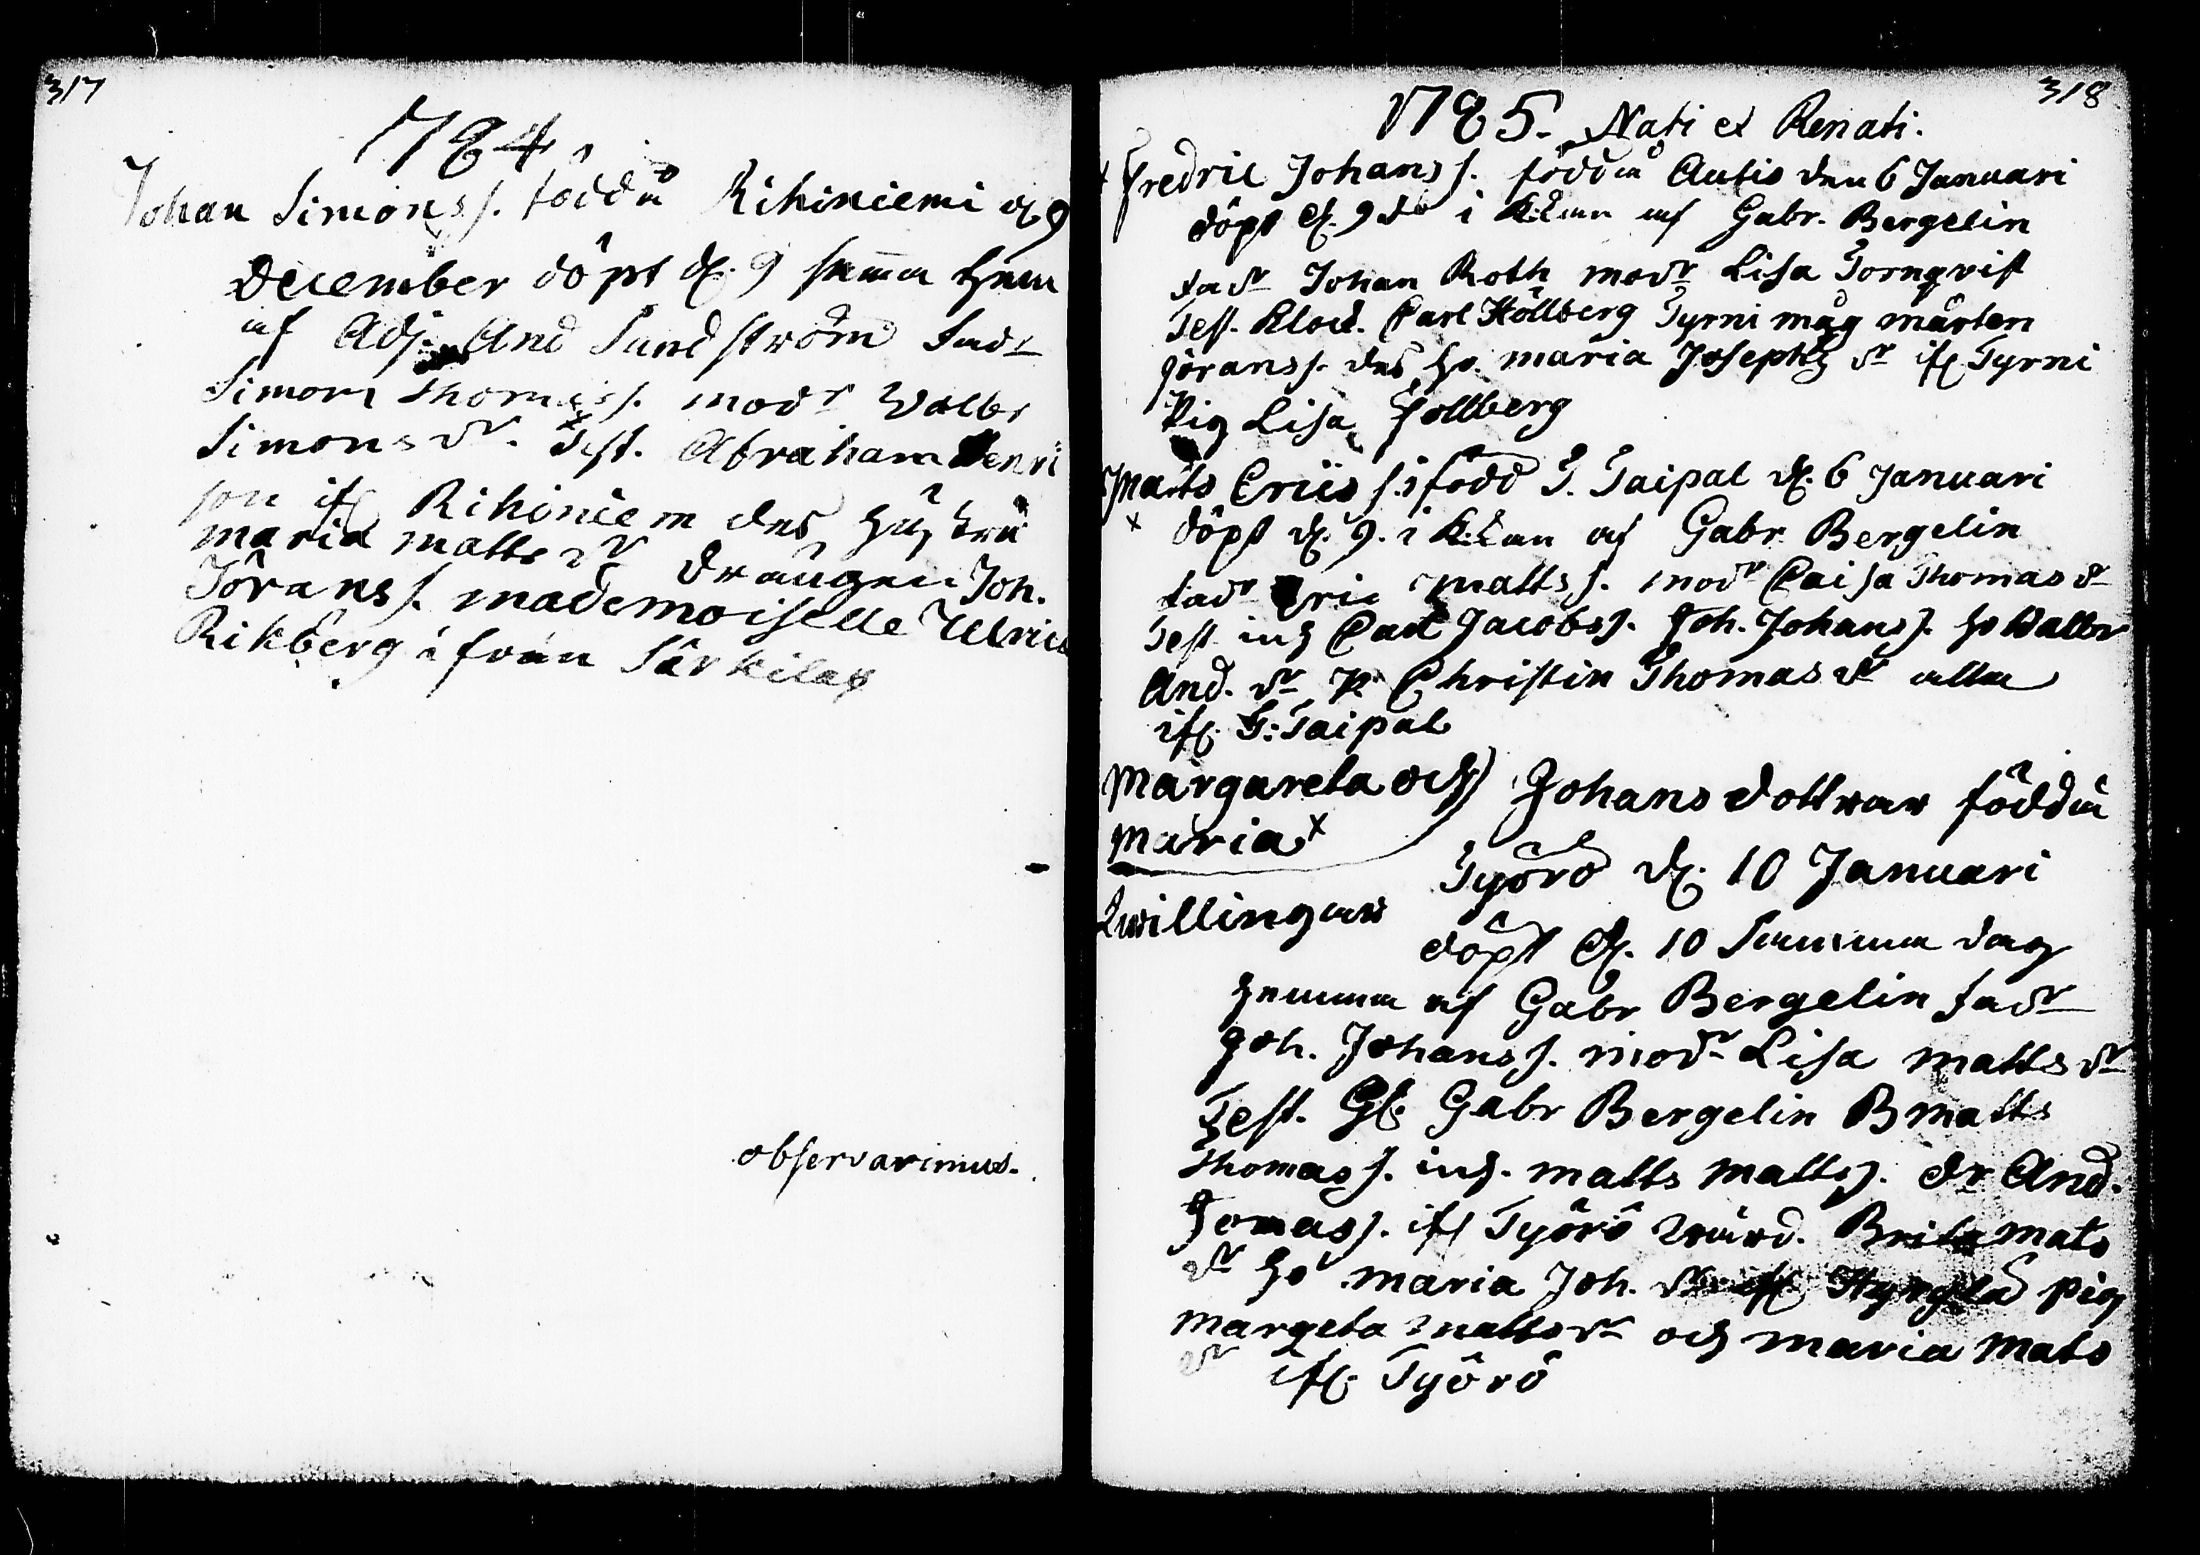 317
1784
Johan Simons s. född å Rihiniemi d. 9
December döpt d. 9 samma hema
af Adj. And Sundström fadr
Simon Thomas s. modr Valbr
Simons dr. Test. Abraham Henri
son if Rihiniem des hustru
maria matts dr drängen Joh.
Jörans s. mademoiselle Ulrica
Rikberg ifrån Särkilax
observarimus.
318
1785. Nati et Renati.
Fredric Johans s. född å Autio den 6 Januari
döpt d. 9 do i K:kan af Gabr. Bergelin
fadr Johan Roth modr Lisa Tornqvist
Test. Klock. Carl Höllberg Tyrni måg mårten
Görans s. des h. maria Josephs dr if Tyrni
Pig Lisa Hollberg
Matts Erics s. född T. Taipal d. 6 Januari
döpt d. 9. i K:kan af Gabr Bergelin
fadr Eric matts s. modr Caisa Thomas dr
Test inh Carl Jacobs s. Joh. Johans s. h Valbr
And. dr P Christin Thomas dr alla
if T: Taipal
Margareta och Johans dottrar född å
maria
Työrö d. 10 Januari
Twillingar
döpt d. 10 Samma dag
hemma af Gabr Bergelin fadr
Joh. Johans s. modr Lisa matts dr
Test. Gabr Bergelin B matts
Thomas s. inh. matts matts s. dr And.
Tomas s. if Työrö Brita mats
dr h maria Joh. pig
margeta matts dr och maria mats
dr if Työrö